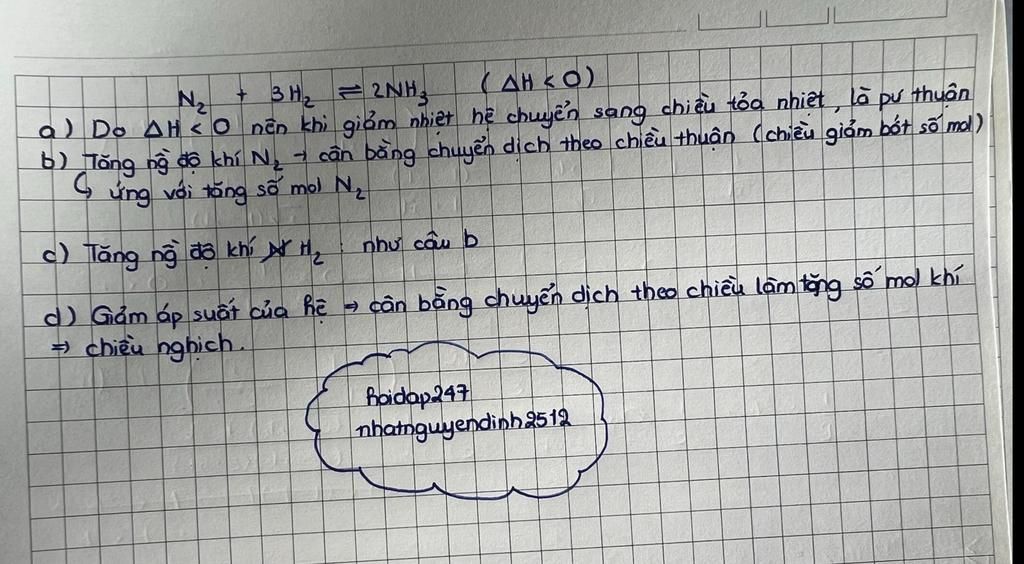 N₂ + 3H₂ ⇌ 2NH₃ (ΔH < 0)
a) Do ΔH < 0 nên khi giảm nhiệt hệ chuyển sang chiều tỏa nhiệt, là pư thuận
b) Tăng ng độ khí N₂ → cân bằng chuyển dịch theo chiều thuận (chiều giảm bớt số mol)
↳ ứng với tăng số mol N₂
c) Tăng ng độ khí H₂ : như câu b
d) Giảm áp suất của hệ → cân bằng chuyển dịch theo chiều làm tăng số mol khí
⇒ chiều nghịch.
hoidap247
nhatnguyendinh2512